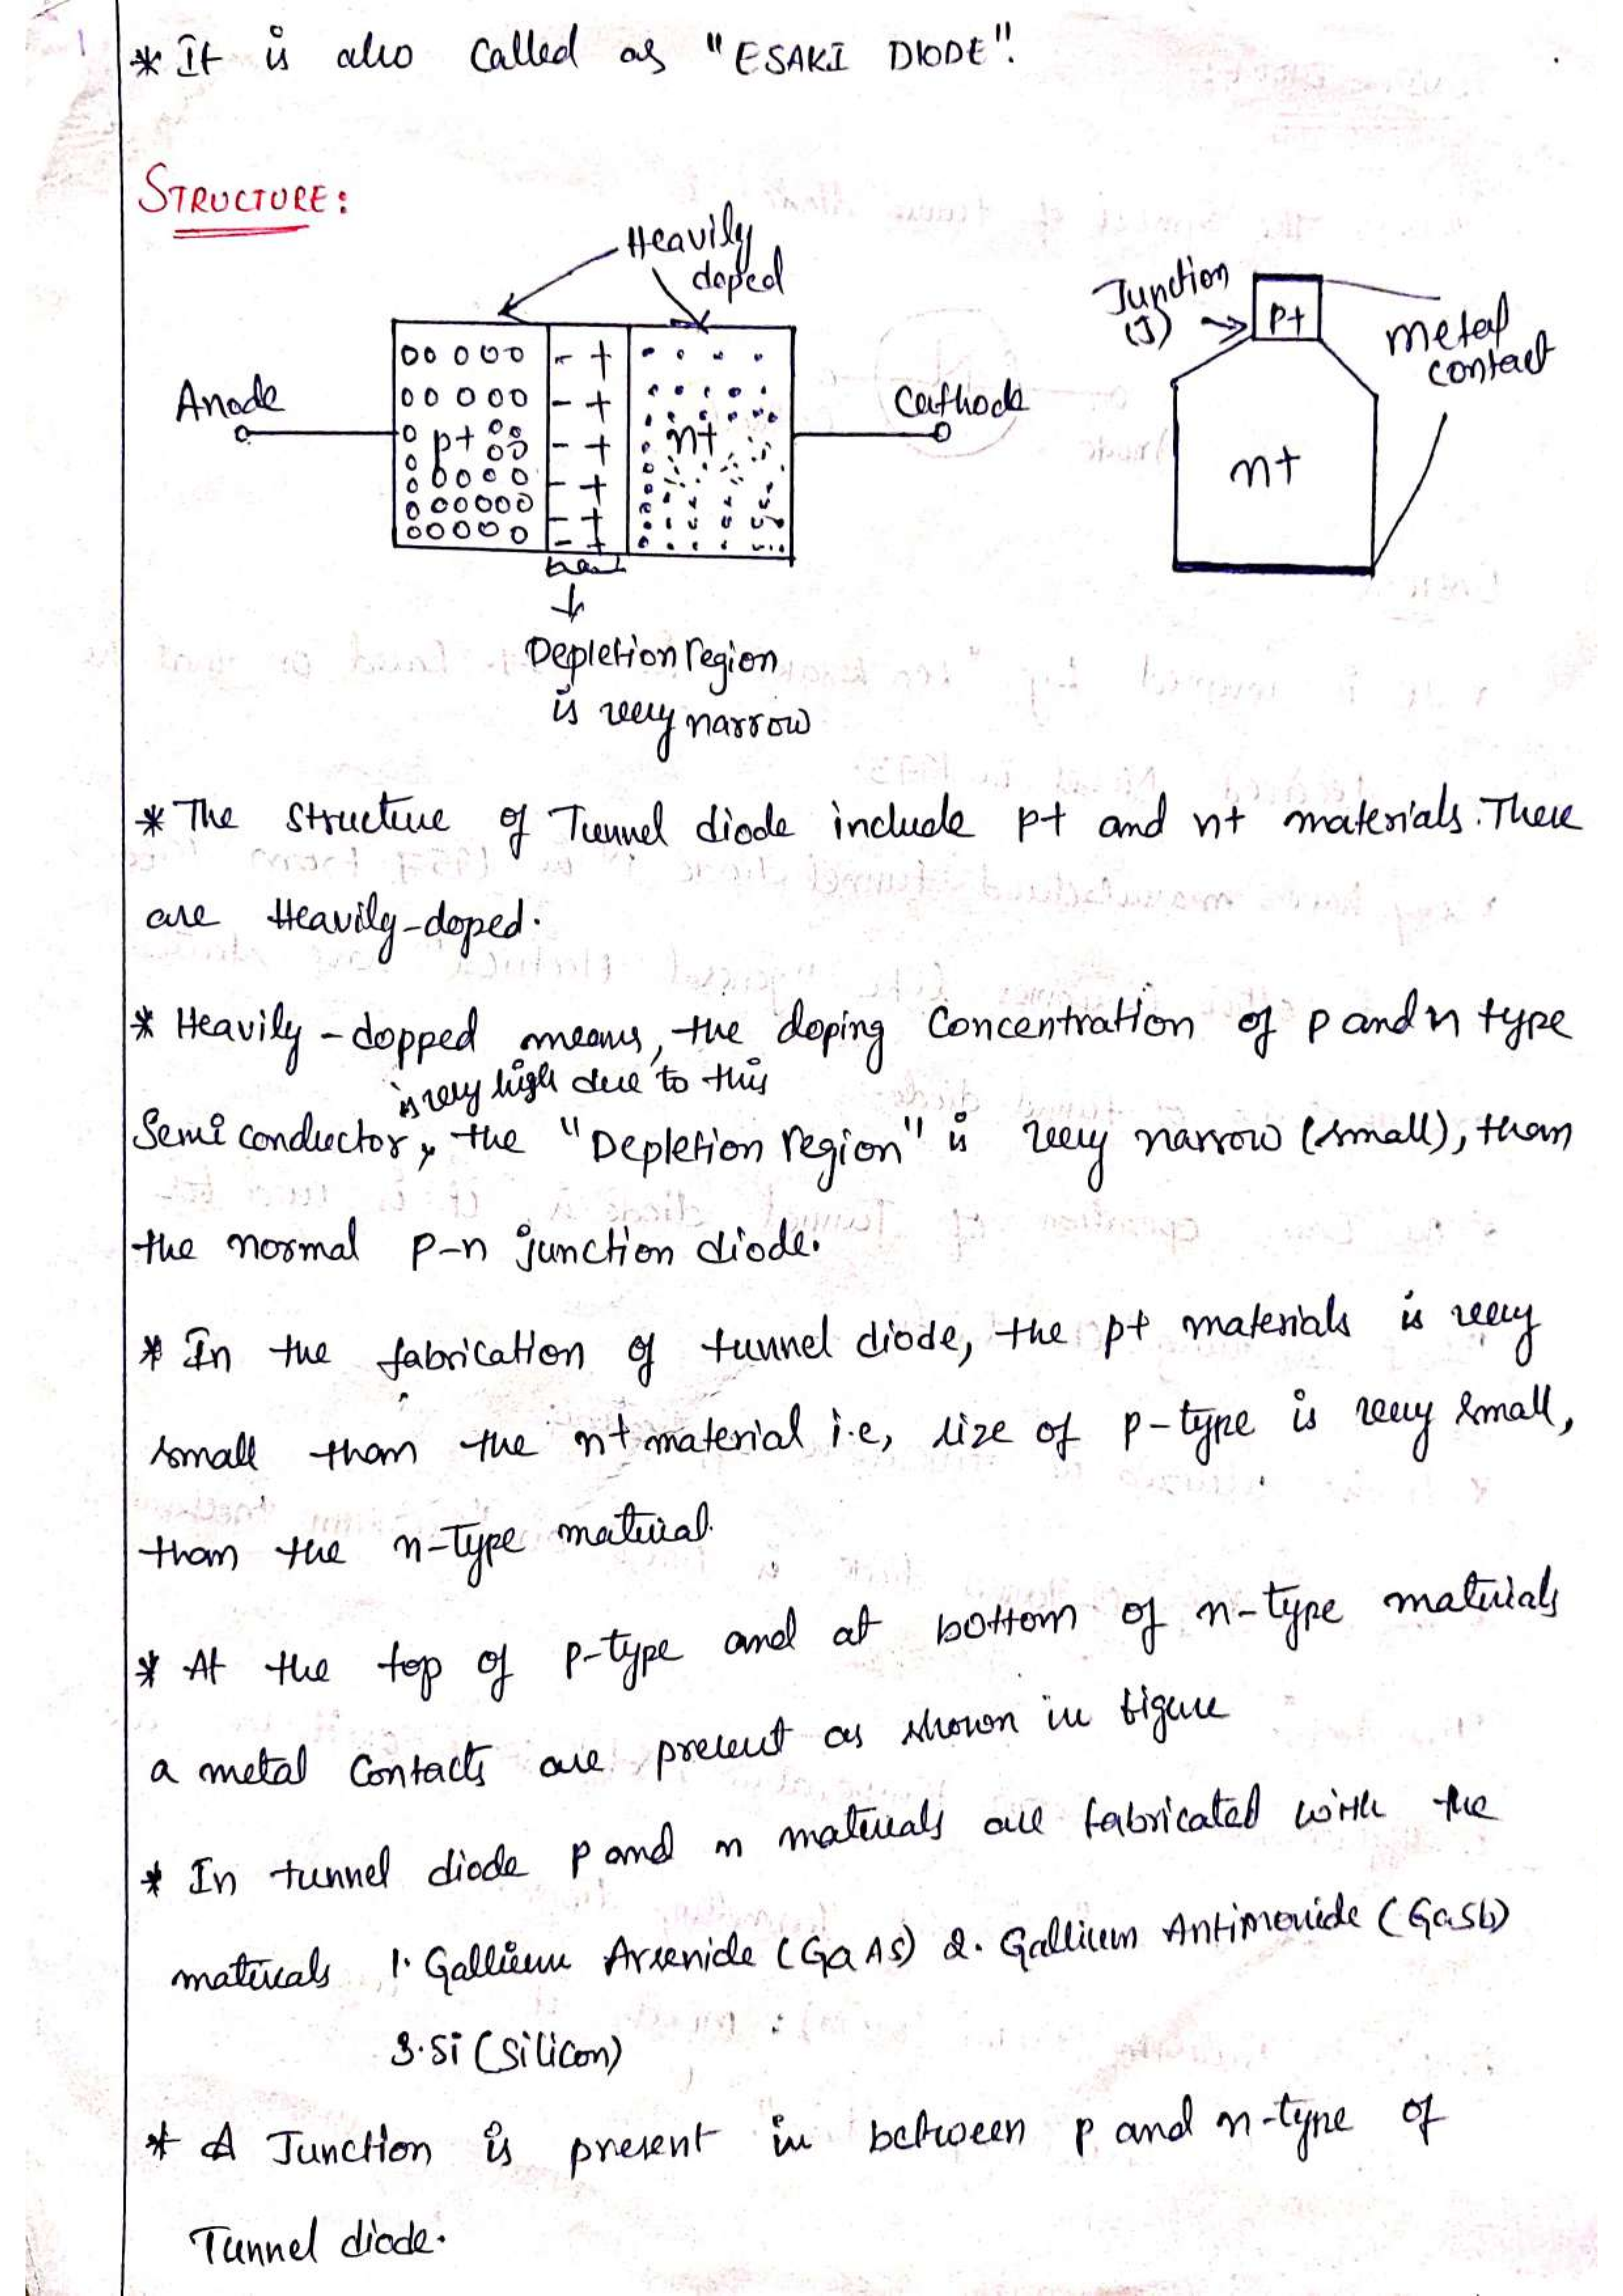 * It is also Called as "ESAKI DIODE".
STRUCTURE:
Heavily
doped
Anode
p+
- +
- +
- +
- +
- +
- +
n+
Cathode
Depletion region
is very narrow
Junction
(J)
p+
n+
metal
contact
* The structure of Tunnel diode include p+ and n+ materials. These
are Heavily-doped.
* Heavily-dopped means, the doping Concentration of p and n type
is very high due to this
Semiconductor, the "Depletion region" is very narrow (small), than
the normal p-n junction diode.
* In the fabrication of tunnel diode, the p+ materials is very
small than the n+ material i.e, size of p-type is very small,
than the n-type material.
* At the top of p-type and at bottom of n-type materials
a metal Contacts are present as shown in figure
* In tunnel diode p and n materials are fabricated with the
materials 1. Gallium Arsenide (GaAs) 2. Gallium Antimonide (GaSb)
3. Si (Silicon)
* A Junction is present in between p and n-type of
Tunnel diode.